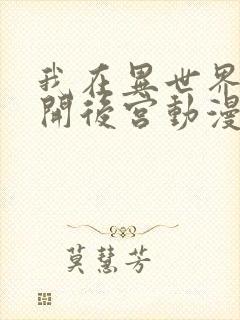 我在異世界
開後宮動漫
莫慧芳